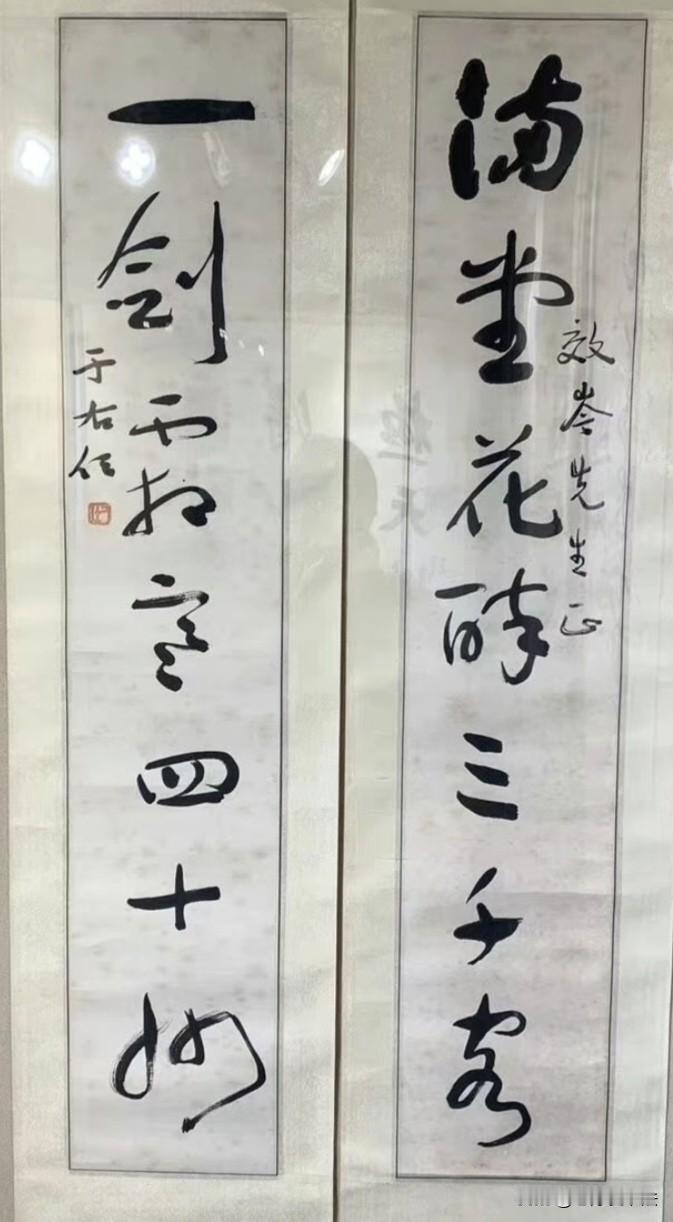 满堂花醉三千客
效岑先生正
一剑霜寒四十州
于右任